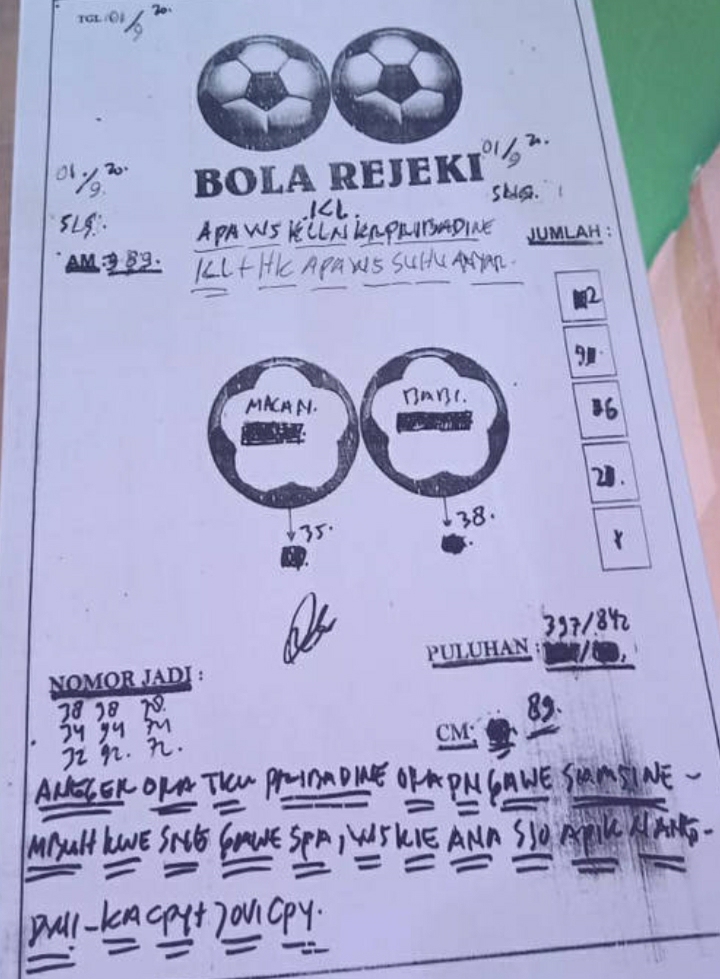 TGL 01/9 20.
01/9 20.
BOLA REJEKI
01/9 20.
SLG.
KL
APA WS KLLN KR PRIBADINE
JUMLAH :
AM: 389.
KL + HK APA WS SUHU ANYAR.
2
9
6
2
MACAN.
BABI.
35.
38.
397/842
PULUHAN :
NOMOR JADI :
38 98 78.
34 94 74
32 92. 72.
CM: 89.
ANGGER ORA TKU PRIBADINE ORA PN GAWE
MBUH KWE SNG GAWE SPA, WS KIE ANA SIO APIK NANG-
- KA CPY + JOVI CPY.